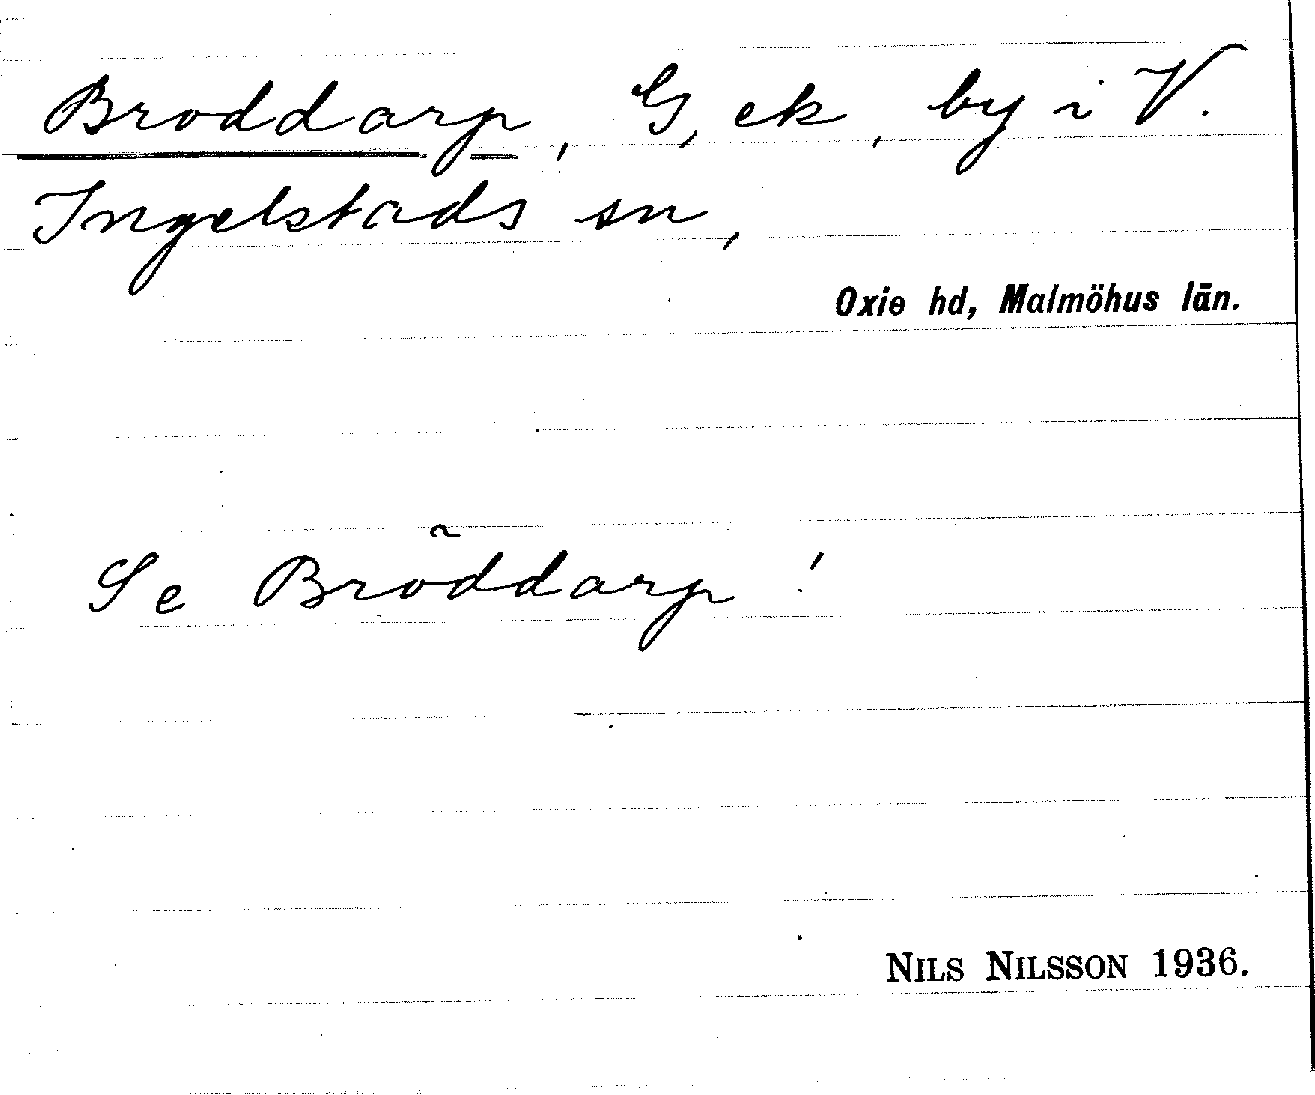 Broddarp, G, ek, by i V.
Ingelstads sn,
Oxie hd, Malmöhus län.
Se Bröddarp!
NILS NILSSON 1936.